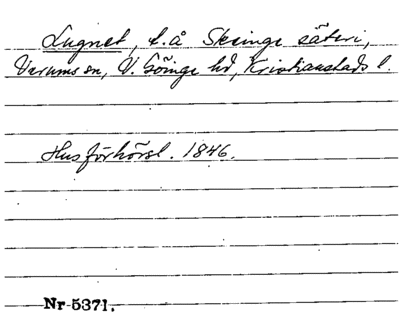 Lugnet, t.å Skeinge säteri,
Verums sn, V. Göinge hd, Kristianstads l.
Husförhörsl. 1846.
Nr 5371.